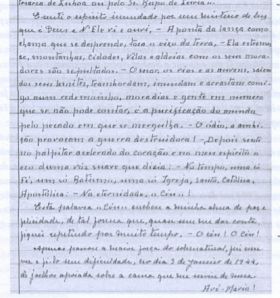 triarca de Lisboa ou pelo Sr. Bispo de Leiria ».
E senti o espírito inundado por um mistério de luz
que é Deus e N'Ele vi e ouvi, – A ponta da lança como
chama que se desprende, toca o eixo da terra, – Ela estreme-
ce, montanhas, cidades, vilas e aldeias com os seus mora-
dores são sepultados. – O mar, os rios e as nuvens, saem
dos seus limites, transbordam, inundam e arrastam consi-
go num redemoinho, moradias e gente em número
que se não pode contar, é a purificação do mundo
pelo pecado em que se mergulha. – O ódio, a ambi-
ção provocam a guerra destruidora! – Depois senti
no palpitar acelerado do coração e no meu espírito o
eco duma voz suave que dizia: – No tempo, uma só
Fé, um só Batismo, uma só Igreja, Santa, Católica,
Apostólica: – Na eternidade, o Céu!
Esta palavra « Céu » encheu a minha alma de paz e
felicidade, de tal forma que, quase sem me dar conta,
fiquei repetindo por muito tempo, – O Céu! O Céu!
Apenas passou a maior força do sobrenatural, fui escre-
ver e fi-lo sem dificuldade, no dia 3 de Janeiro de 1944,
de joelhos apoiada sobre a cama que me serviu de mesa.
Avé-Maria!